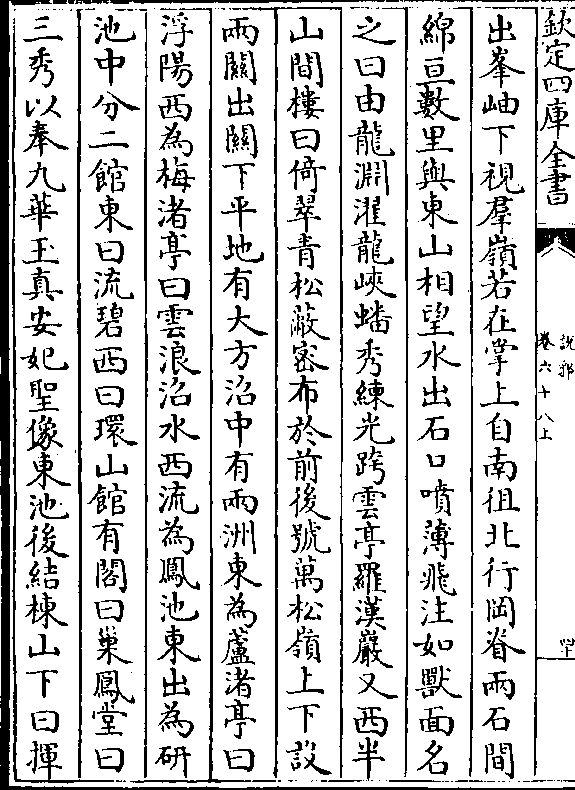 欽定四庫全書
說郛
卷六十八上
四十
出峯岫下視羣嶺若在掌上自南徂北行岡脊兩石間
綿亘數里與東山相望水出石口噴薄飛注如獸面名
之曰由龍淵濯龍峽蟠秀練光跨雲亭羅漢巖又西半
山間樓曰倚翠青松蔽密布於前後號萬松嶺上下設
兩關出關下平地有大方沼中有兩洲東為蘆渚亭曰
浮陽西為梅渚亭曰雲浪沼水西流為鳳池東出為研
池中分二館東曰流碧西曰環山館有閣曰巢鳳堂曰
三秀以奉九華玉真安妃聖像東池後結棟山下曰揮